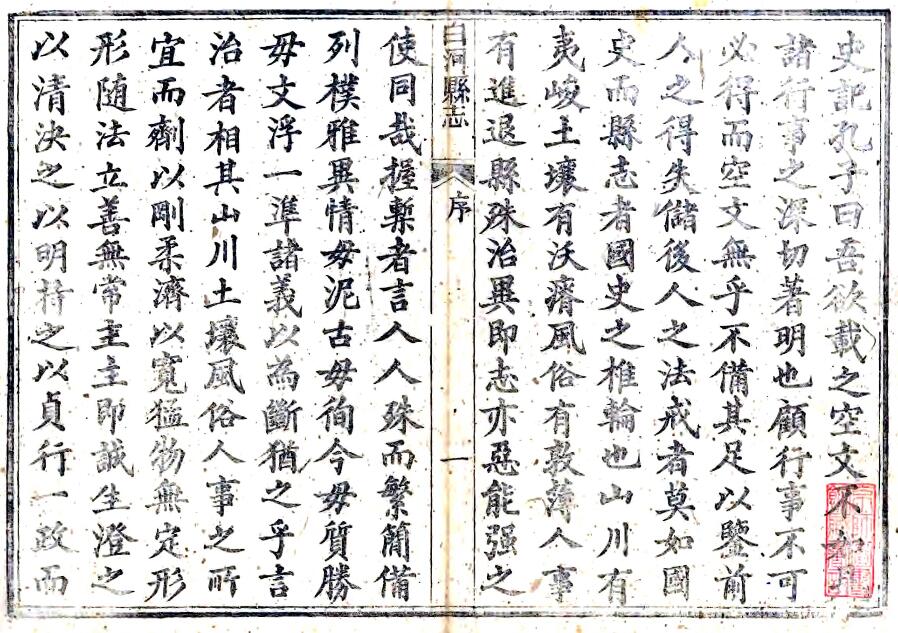 史記孔子曰吾欲載之空文不如
諸行事之深切著明也顧行事不可
必得而空文無乎不備其足以鑒前
人之得失儲後人之法戒者莫如國
史而縣志者國史之椎輪也山川有
夷峻土壤有沃瘠風俗有敦薄人事
有進退縣殊治異即志亦惡能强之
白河縣志 序 一
使同哉握槧者言人人殊而繁簡備
列樸雅異情毋泥古毋徇今毋質勝
毋文浮一準諸義以為斷猶之乎言
治者相其山川土壤風俗人事之所
宜而劑以剛柔濟以寬猛物無定形
形随法立善無常主主即誠生澄之
以清决之以明持之以貞行一政而